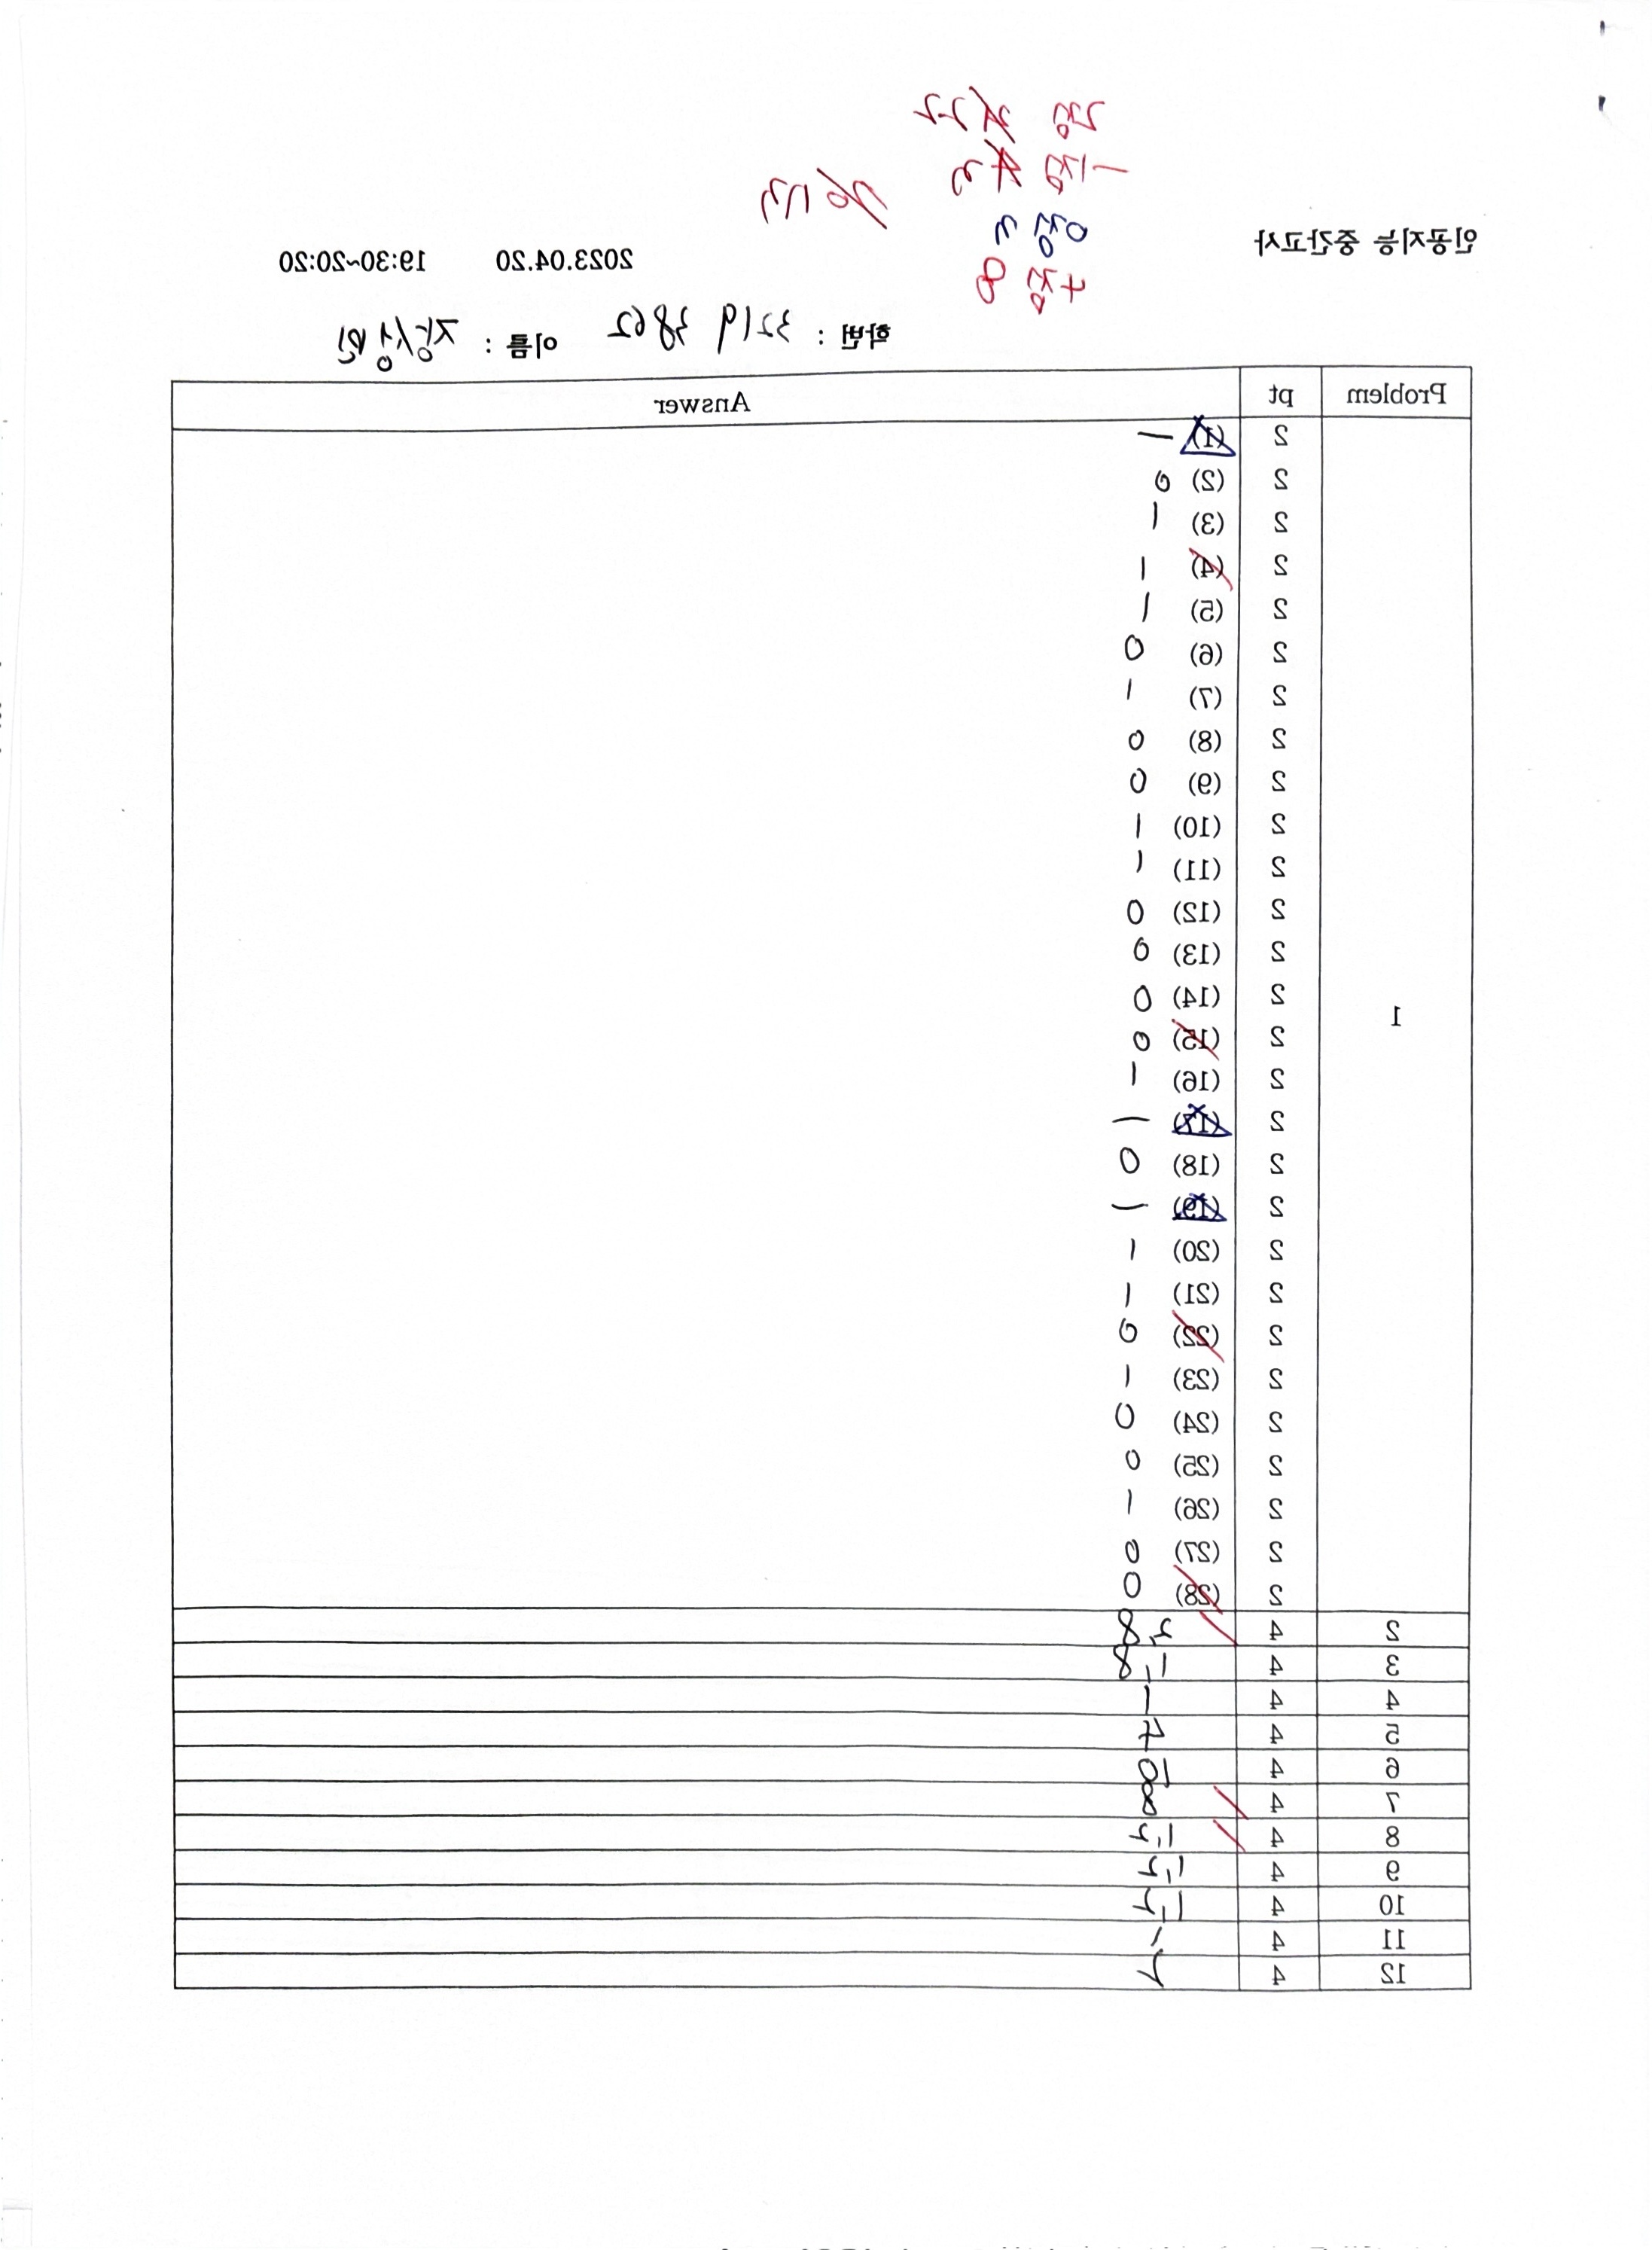 2점 22
-1점 3
0점 3
4점 8
73
인공지능 중간고사
2023.04.20 19:30~20:20
학번 : 3219 3862 이름 : 장성민
Problem pt Answer
1
2 (1) —
2 (2) 0
2 (3) 1
2 (4) 1
2 (5) 1
2 (6) 0
2 (7) 1
2 (8) 0
2 (9) 0
2 (10) 1
2 (11) 1
2 (12) 0
2 (13) 0
2 (14) 0
2 (15) 0
2 (16) 1
2 (17) —
2 (18) 0
2 (19) —
2 (20) 1
2 (21) 1
2 (22) 0
2 (23) 1
2 (24) 0
2 (25) 0
2 (26) 1
2 (27) 0
2 (28) 0
2 4 2, 8
3 4 1, 8
4 4 1
5 4 4
6 4 10
7 4 8
8 4 1, 2
9 4 1, 2
10 4 1, 2
11 4 1
12 4 2